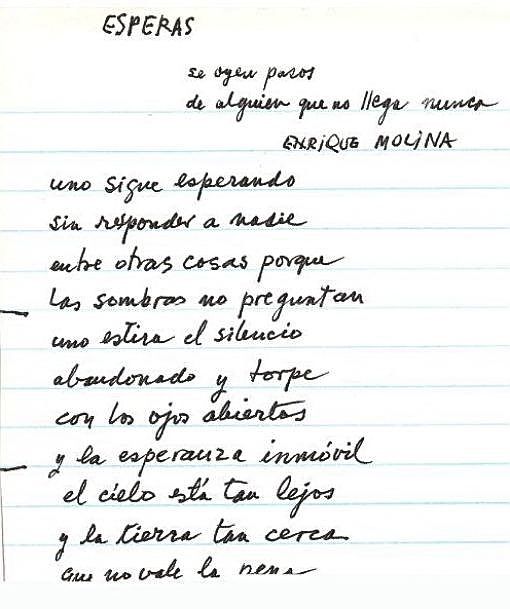 ESPERAS
se oyen pasos
de alguien que no llega nunca
ENRIQUE MOLINA
uno sigue esperando
sin responder a nadie
entre otras cosas porque
las sombras no preguntan
uno estira el silencio
abandonado y torpe
con los ojos abiertos
y la esperanza inmóvil
el cielo está tan lejos
y la tierra tan cerca
que no vale la pena